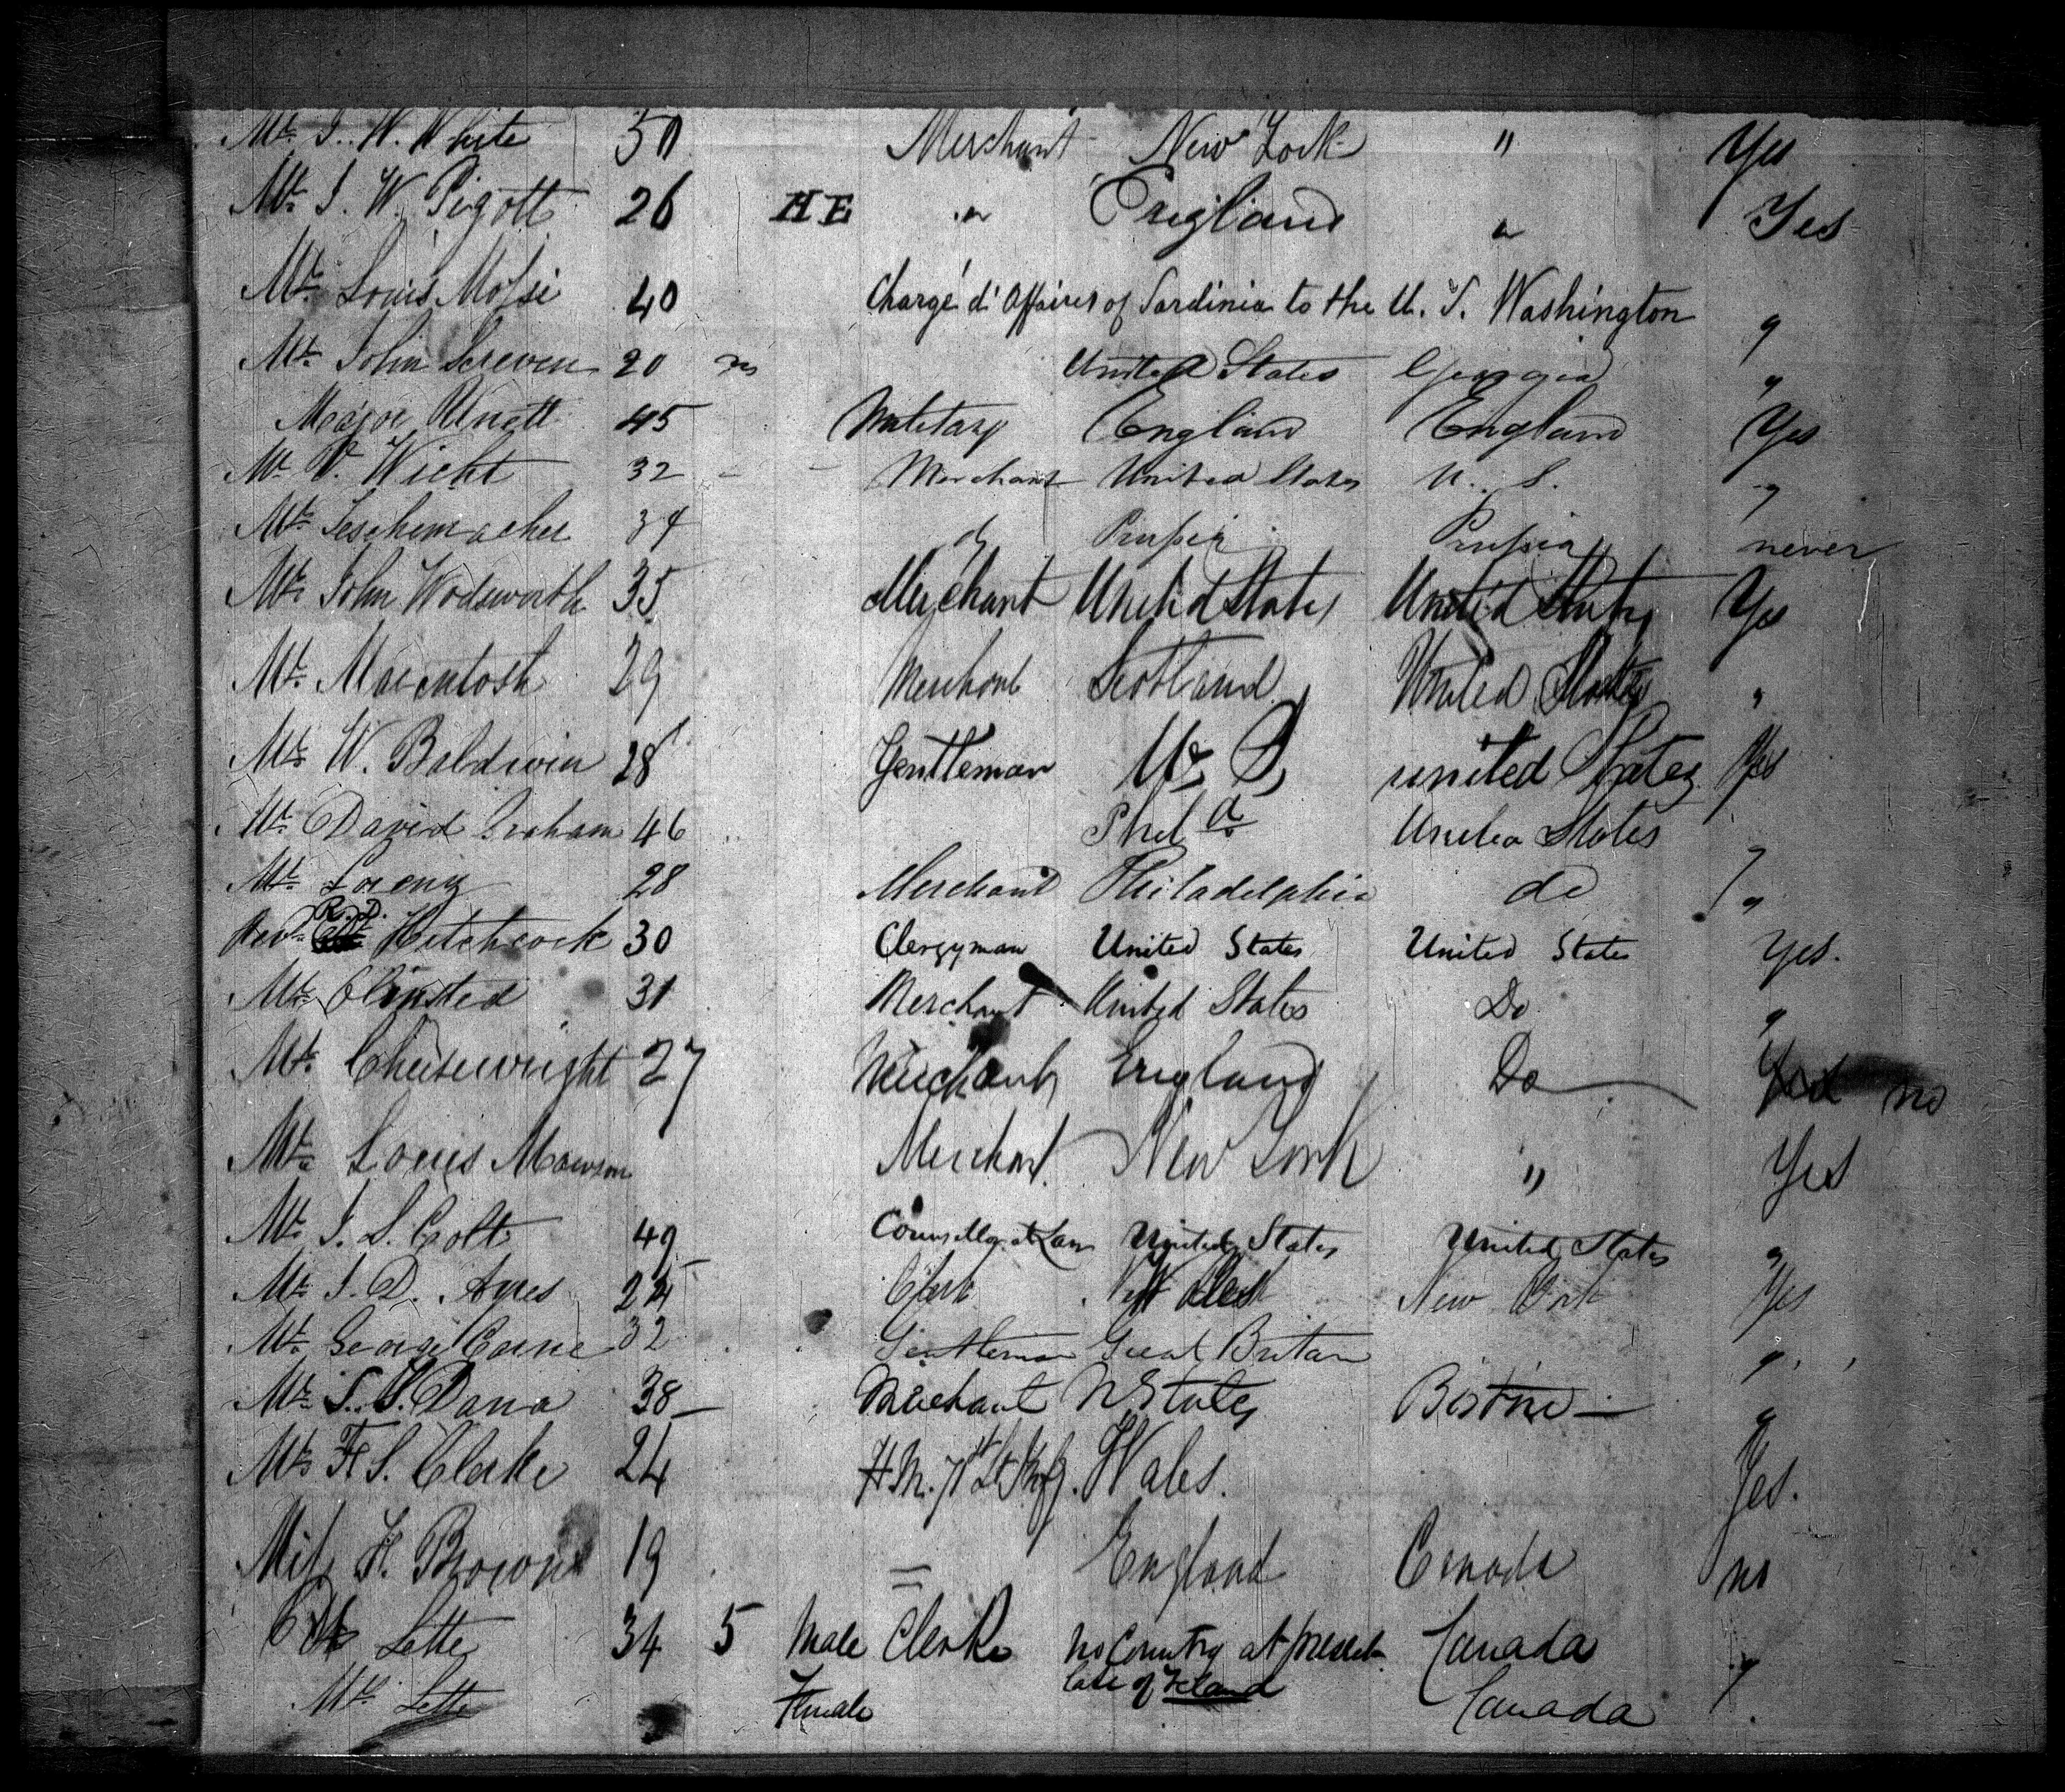 Mr. J. W. White 50 Merchant New York " Yes
Mr. J. W. Pigott 26 HE " England " Yes
Mr. Louis Mossi 40 Chargé d' Affaires of Sardinia to the U. S. Washington "
Mr. John Screven 20 United States Georgia "
Major Unett 45 Military England England Yes
Mr. V. Wicht 32 - - Merchant United States U. S. "
Mr. Teschemacher 34 do Prussia Prussia never
Mr. John Wodsworth 35 Merchant United States United States Yes
Mr. Macentosh 29 Merchant Scotland United States "
Mr. W. Baldwin 28 Gentleman U. S. united States Yes
Mr. David Graham 46 Phil a United States "
Mr. 28 Merchant Philadelphia do "
Revd. R. D. Hitchcock 30 Clergyman United States United States Yes.
Mr. Olmsted 31 Merchant United States Do "
Mr. Cheesewright 27 Merchant England Do Yes no
Mr. Louis Mawson Merchant. New York " Yes
Mr. J. S. Colt 49 Counsellor at Law United States United States "
Mr. J. D. Ayres 24 Clerk New York New York Yes
Mr. George Carne 32 Gentleman Great Britain "
Mr. S. S. Dana 38 Merchant U States Boston "
Mr. F. S. Clerke 24 H. M. 71st Lt Infy. Wales. Yes.
Miss H. Browne 19 = England Canada no
Lette 34 5 Male Clerke no Country at present Canada "
late of Ireland
Mrs. Lette Female Canada